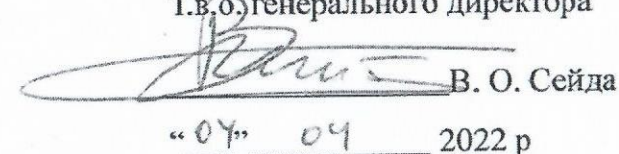 Т.в.о. генерального директора
В. О. Сейда
“ 04 ” 04 2022 р